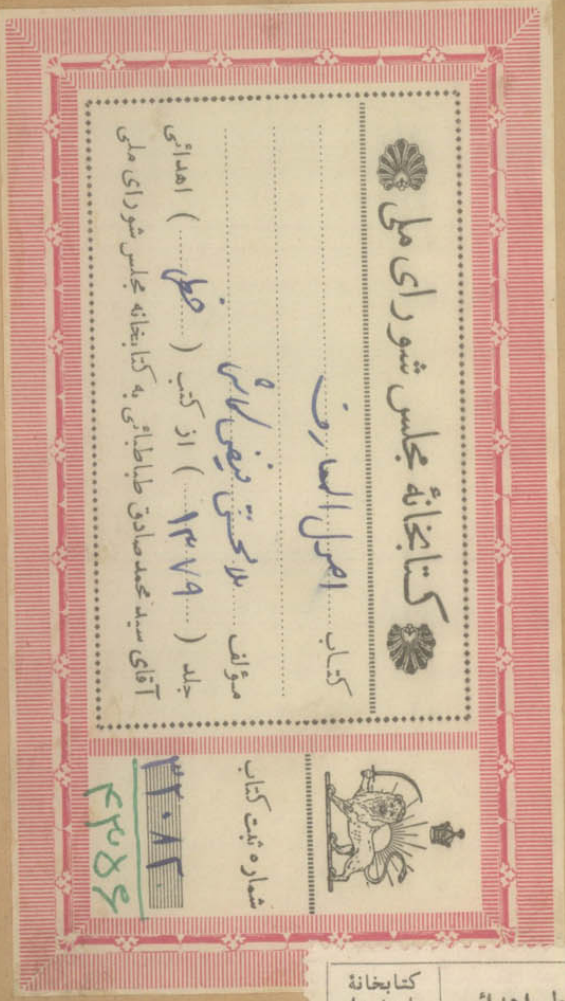 کتابخانهٔ مجلس شورای ملی
کتاب اصول المعارف
مؤلف ملا محسن فیض کاشی
جلد ( ۱۳۷۹ ) از کتب ( خطی ) اهدائی
آقای سید محمد صادق طباطبائی به کتابخانه مجلس شورای ملی
شماره ثبت کتاب
۳۲۰۸۲
۴۳۵۶
کتابخانهٔ